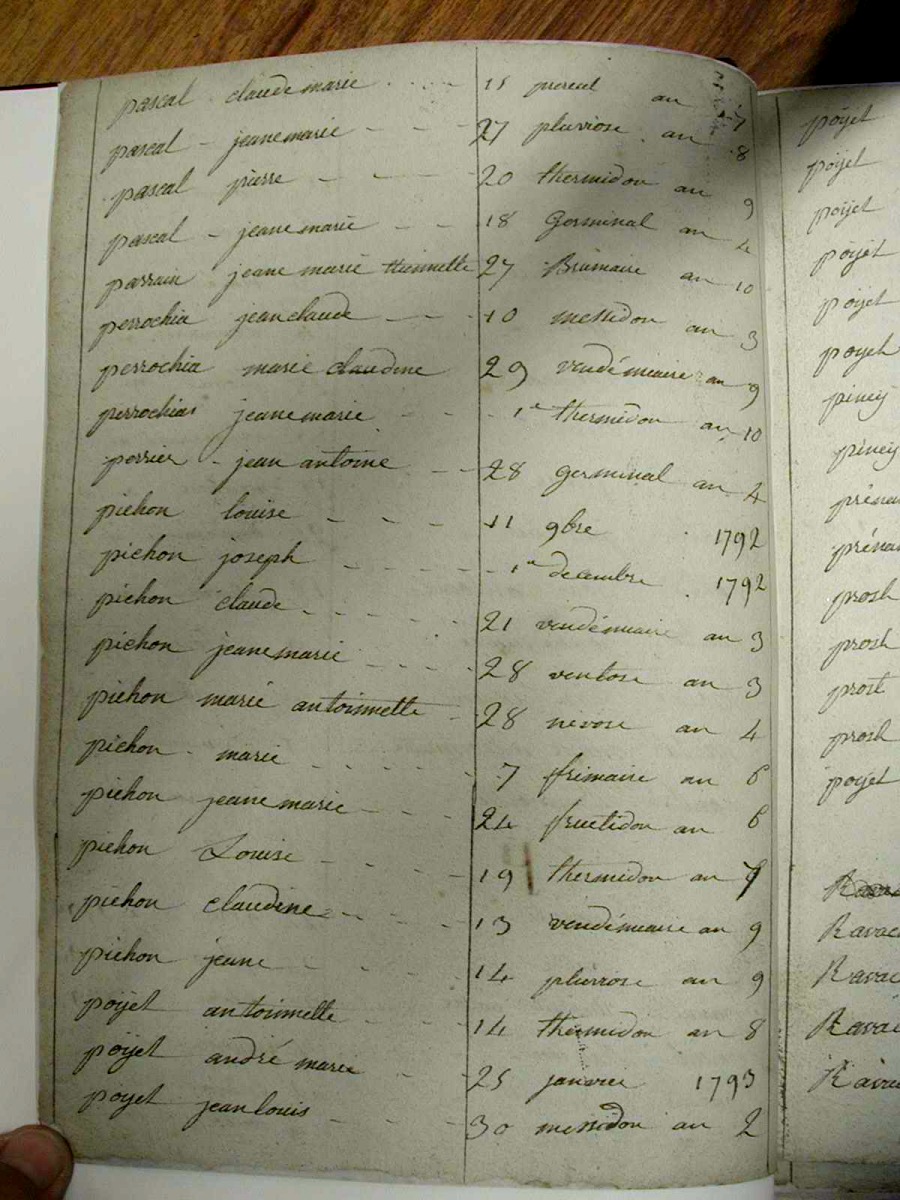 pascal claude marie 15 prereal an 7
pascal - jeanemarie - - - 27 pluviose an 8
pascal pierre - - 20 thermidor an 9
pascal - jeanemarie - - 18 Germinal an 4
parrain jeane marie thiennette 27 Brumaire an 10
perrochia jeanclaude - - - 10 messidor an 3
perrochia marie claudine 29 vendémiaire an 9
perrochia jeanemarie - - - 1er thermidor an 10
perrier - jean antoine - - 28 germinal an 4
pichon louise - - - 11 9bre 1792
pichon joseph - - - 1er decembre 1792
pichon claude - - - 21 vendémiaire an 3
pichon jeanemarie - - - 28 ventose an 3
pichon marie antoinnette - 28 nivose an 4
pichon - marie - - - 7 frimaire an 6
pichon jeanemarie - - - 24 fructidor an 6
pichon Louise - - - 19 thermidor an
pichon claudine - - 13 vendémiaire an 9
pichon jeane - - - 14 pluviose an 9
poÿet antoinnette - - 14 thermidor an 8
poÿet andré marie - - 25 janvier 1793
poyet jeanlouis - - - 30 messidor an 2
poÿet
poÿet
poÿet
poÿet
poÿet
poyet
piney
piney
prost
prost
poÿet